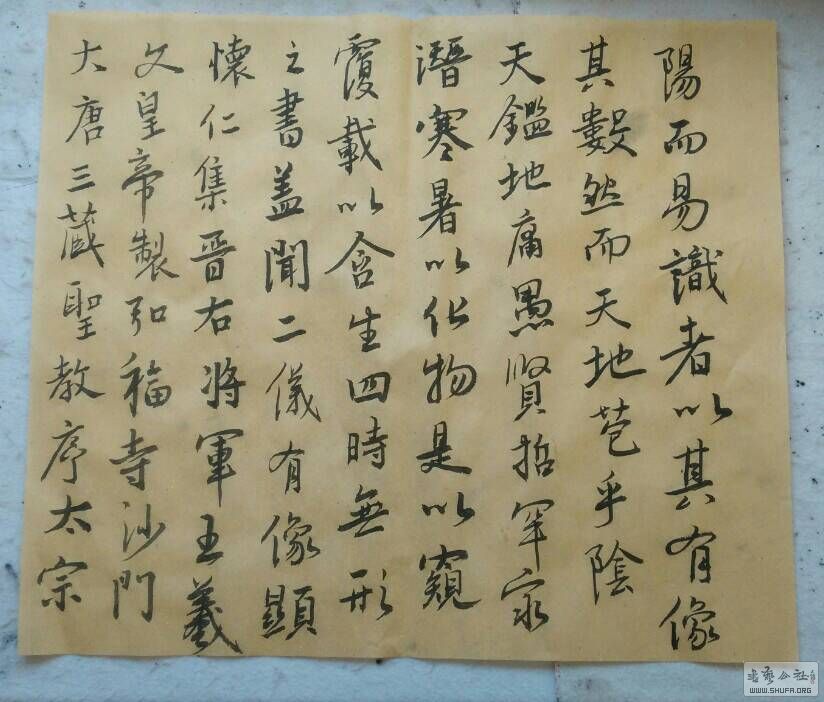 大唐三藏聖教序太宗
文皇帝製弘福寺沙門
懷仁集晉右將軍王羲
之書蓋聞二儀有像顯
覆載以含生四時無形
潛寒暑以化物是以窺
天鑑地庸愚賢哲罕窮
其數然而天地苞乎陰
陽而易識者以其有像
书艺公社
WWW.SHUFA.ORG